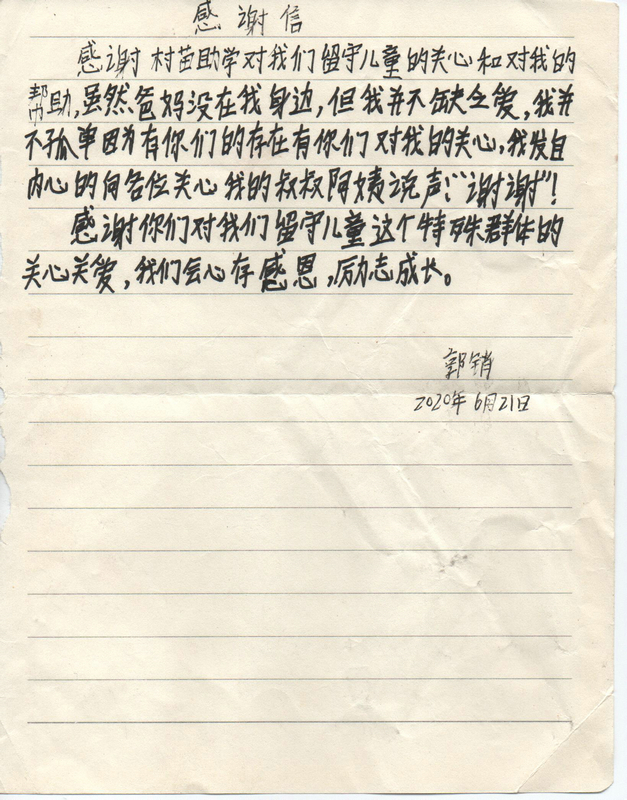 感谢信
感谢村苗助学对我们留守儿童的关心和对我的
帮助,虽然爸妈没在我身边,但我并不缺乏爱,我并
不孤单因为有你们的存在有你们对我的关心,我发自
内心的向各位关心我的叔叔阿姨说声:“谢谢”!
感谢你们对我们留守儿童这个特殊群体的
关心关爱,我们会心存感恩,励志成长。
郭销
2020年6月21日